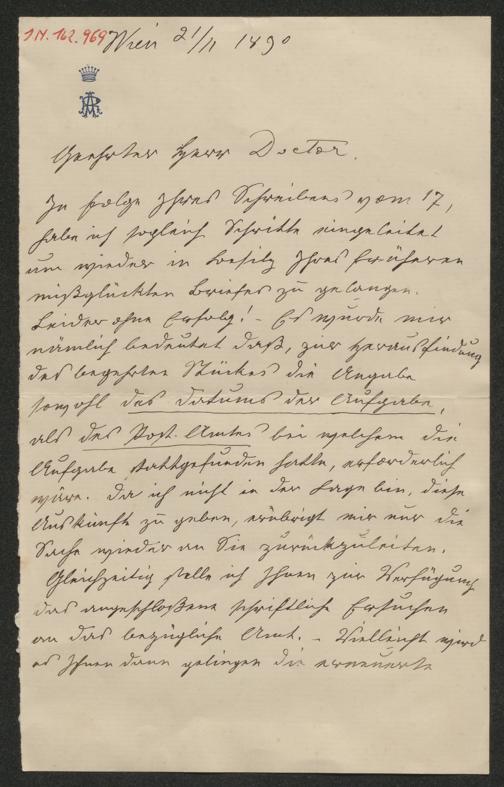 I.N. 162.969
Wien 21/11 1890
AR
Geehrter Herr Doctor.
Zu folge Ihres Schreibens vom 17,
habe ich sogleich Schritte eingeleitet
um wieder in Besitz Ihres früheren
mißglückten Briefes zu gelangen.
Leider ohne Erfolg! – Es wurde mir
nämlich bedeutet daß, zur Herausfindung
des begehrten Stückes die Angabe
sowohl des Datums der Aufgabe,
als des Post-Amtes bei welchem die
Aufgabe stattgefunden hatte, erforderlich
wäre. Da ich nicht in der Lage bin, diese
Auskünfte zu geben, erübrigt mir nur die
Sache wieder an Sie zurückzuleiten.
Gleichzeitig stelle ich Ihnen zur Verfügung
das angeschloßene schriftliche Ersuchen
an das bezügliche Amt. – Vielleicht wird
es Ihnen dann gelingen die erneuerte